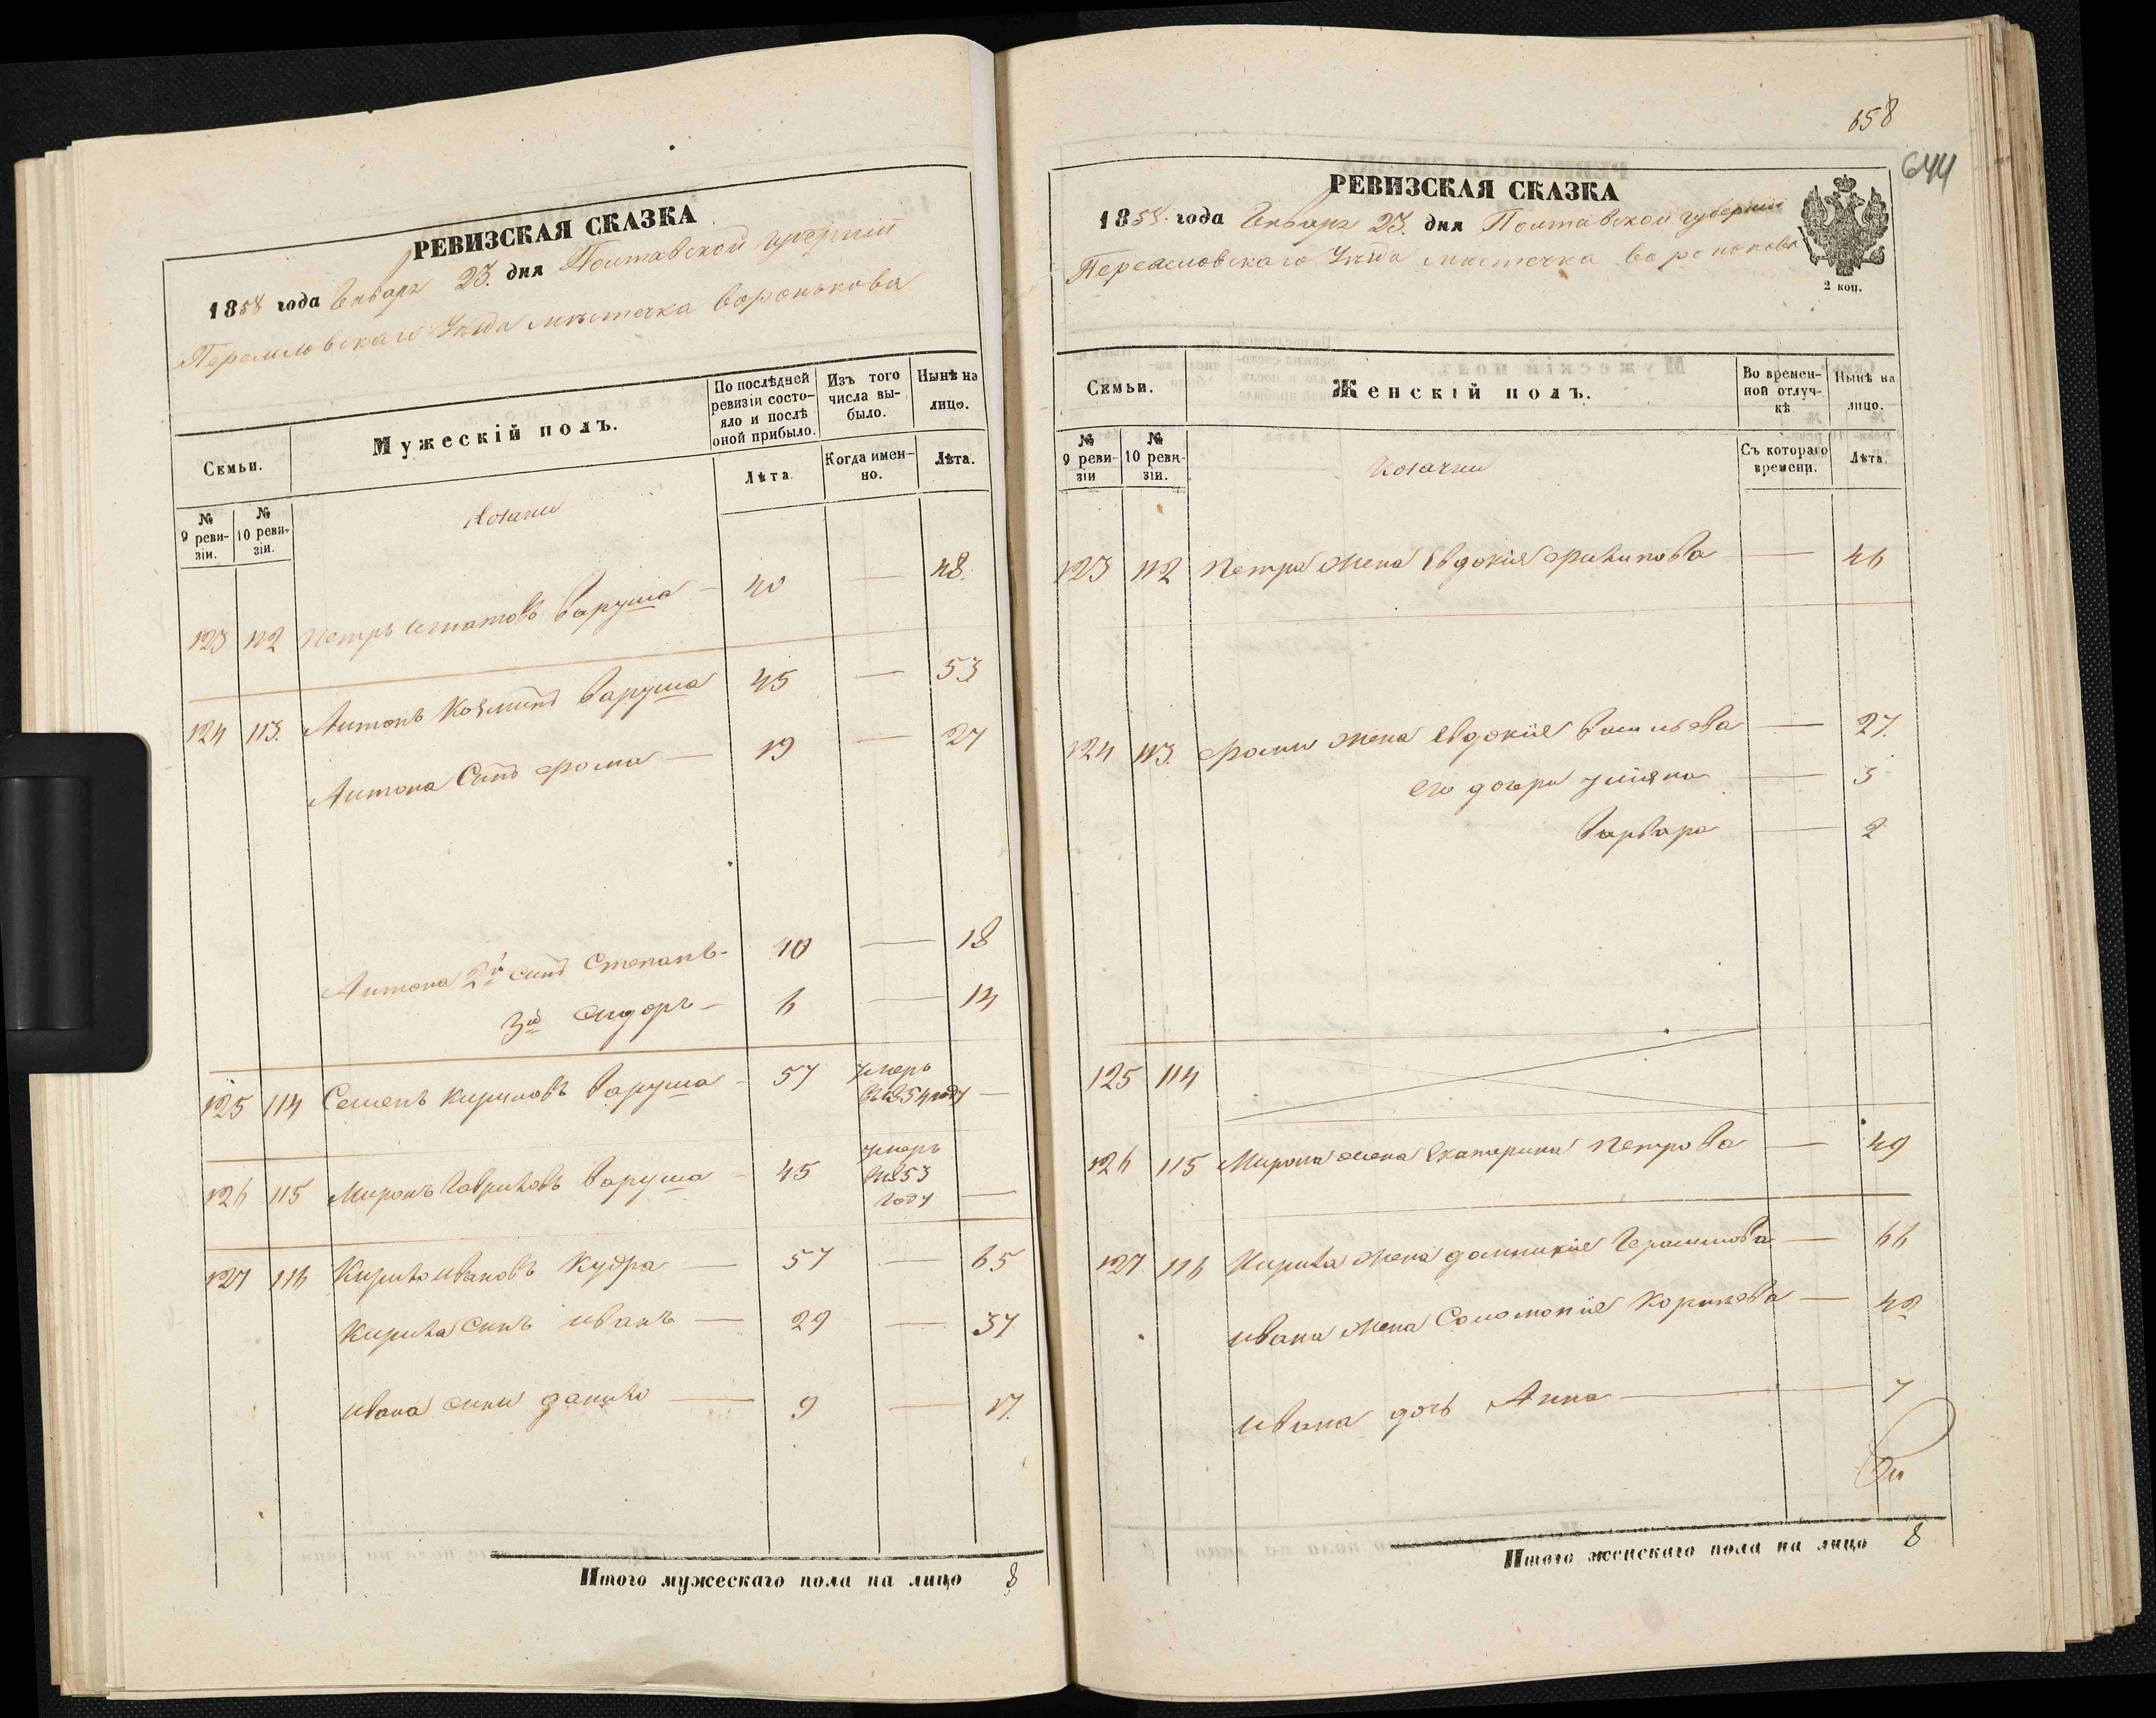 РЕВИЗСКАЯ СКАЗКА
1858 года Января 23. дня Полтавской губернии
Переяславскаго Уезда местечка Воронькова
Семьи.
Мужескій полъ.
По послѣдней ревизіи состояло и послѣ оной прибыло.
Изъ того числа выбыло.
Нынѣ на лицо.
№ 9 ревизіи.
№ 10 ревизіи.
Козаки
Лѣта
Когда именно.
Лѣта.
123 112 Петръ Игнатовъ Варуша — 40 — 48.
124 113. Антонъ Козминъ Варуша 45 — 53
Антона Сынъ Фома — 19 — 27
Антона 2й сынъ Степанъ - 10 — 18
3й Сидоръ - 6 — 14
125 114 Семенъ Кириловъ Варуша - 57 умеръ въ 1854 году —
126 115 Миронъ Гавриловъ Варуша - 45 умеръ въ 1853 году —
127 116 Кирило Ивановъ Кудра — 57 — 65
Кирила Сынъ Иванъ — 29 — 37
Ивана сынъ Данило — 9 — 17.
Итого мужескаго пола на лицо 8
658
644
РЕВИЗСКАЯ СКАЗКА
1858 года Января 23. дня Полтавской губернии
Переяславскаго Уезда местечка Воронькова
2 коп.
Семьи.
Женскій полъ.
Во временной отлучкѣ.
Нынѣ на лицо.
№ 9 ревизіи
№ 10 ревизіи.
Козачки
Съ котораго времени.
Лѣта.
123 112 Петра жена Евдокия Филипова — 46
124 113. Фомы жена Евдокия Васильева — 27.
его дочери Ульяна — 3
Варвара — 2
125 114
126 115 Мирона жена Екатерина Петрова — 49
127 116 Кирила жена Домникия Герасимова — 66
Ивана жена Соломония Корнеева — 42
Ивана дочь Анна — 7
Итого женскаго пола на лицо 8